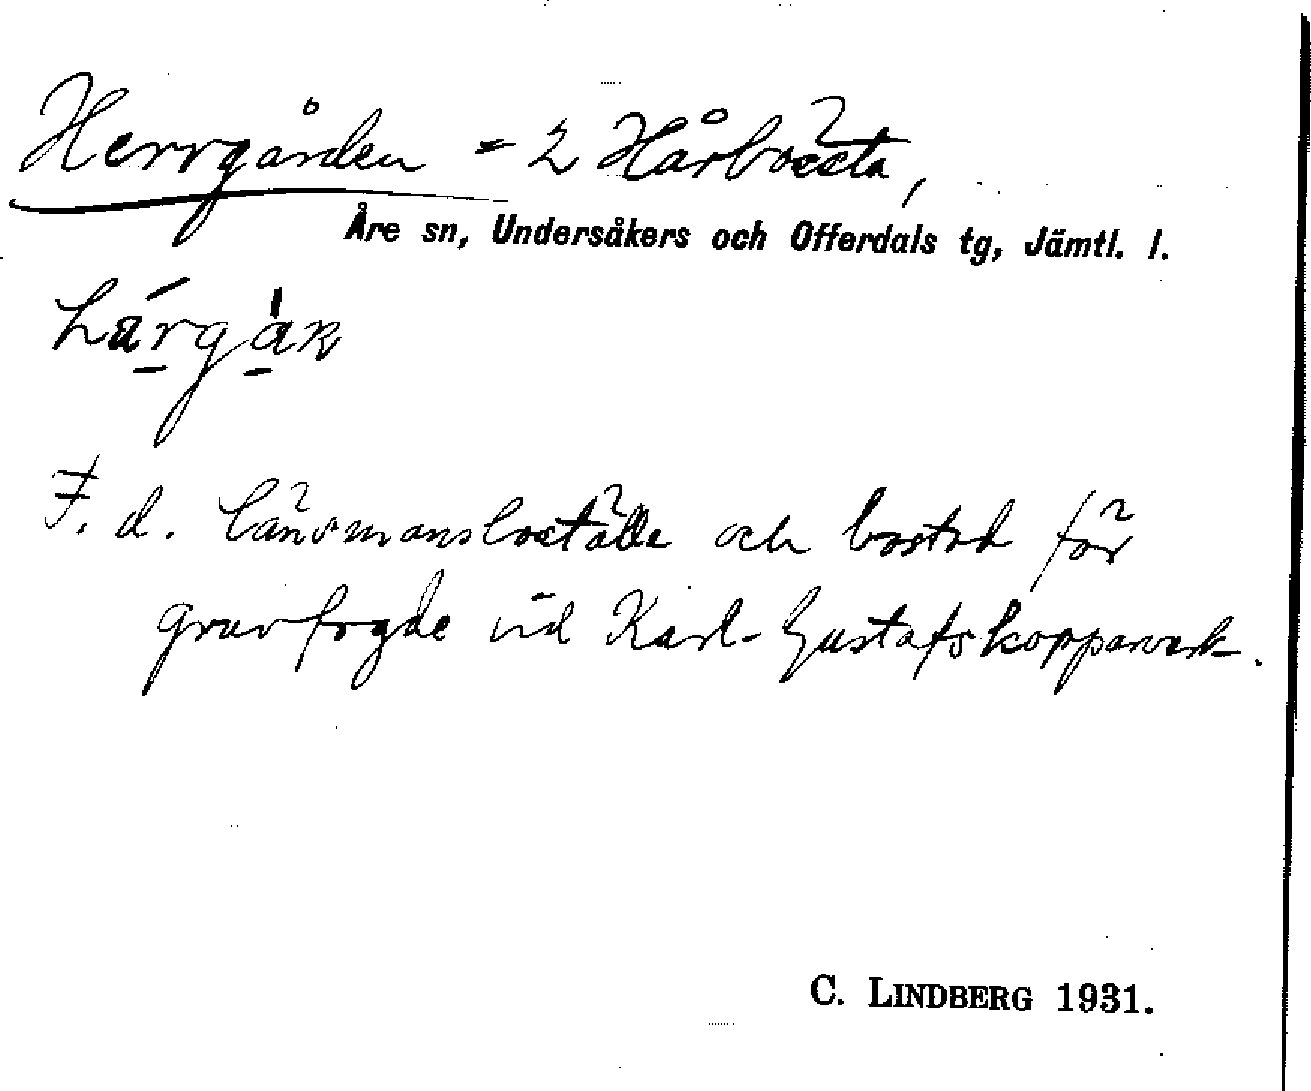 Herrgården = 2 Hårbörsta,
Åre sn, Undersåkers och Offerdals tg, Jämtl. l.
F. d. länsmansboställe och bostad för
gruvfogde vid Karl-Gustafs kopparverk.
C. LINDBERG 1931.